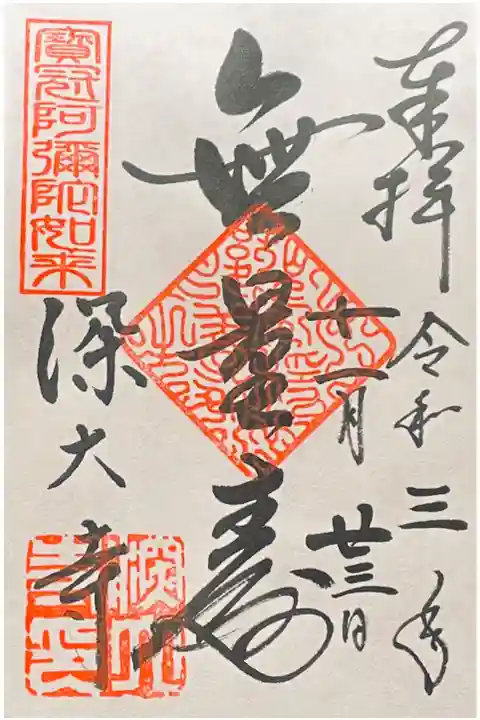 奉拝
令和三年
十一月
廿三日
無量壽
寶冠阿彌陀如来
深大寺